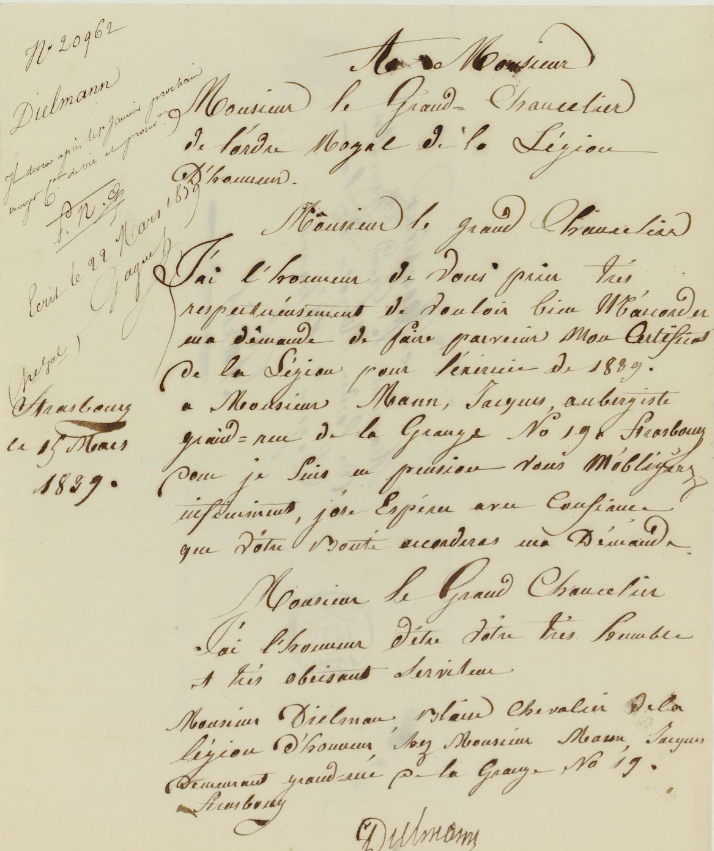 N° 20962
Dielmann
Il devra après le 1er Janvier prochain
envoyer
P. N. G.
Ecrit le 22 Mars 1839
Strasbourg
le 15 Mars
1839.
A Monsieur
Monsieur le Grand-Chancelier
de l'ordre Royal de la Légion
D'honneur.
Monsieur le grand Chancelier
J'ai l'honneur de vous prier très
respectueusement de vouloir bien M'accorder
ma demande de faire parvenir Mon Certificat
de la Légion pour l'éxercice de 1839.
a Monsieur Mann, Jacques, aubergiste
grand-rue de la Grange No 19. Strasbourg
je suis en pension vous M'obligerez
infiniment, j'ose Espérer avec Confiance
que vôtre Bonté accorderas ma Démande.
Monsieur le Grand Chancelier
J'ai l'honneur d'être vôtre très humble
et très obeisant serviteur
Monsieur Dielman, Blaise Chevalier de la
légion d'honneur chez Monsieur Mann, Jacques
Demeurant grand-rue de la Grange No 19.
Strasbourg
Dielmann